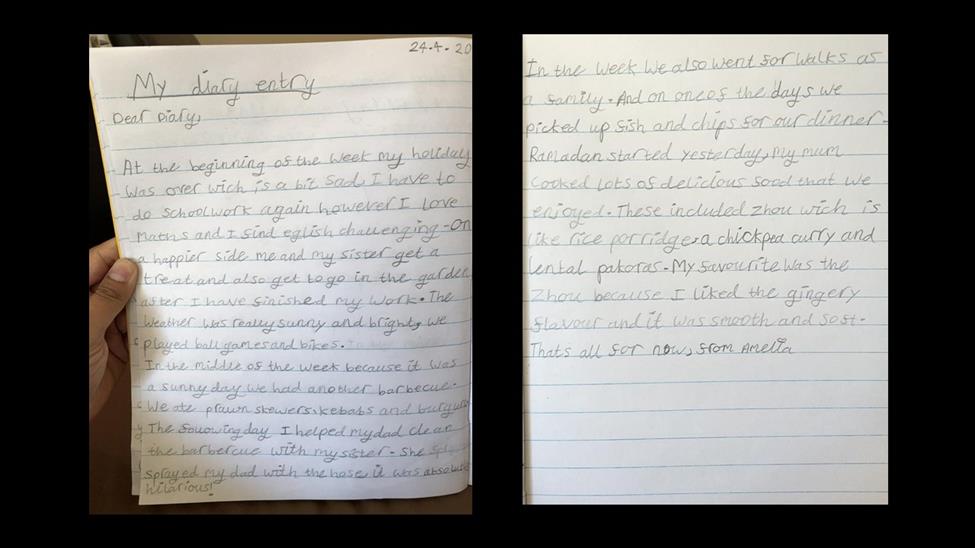 24.4.20
My diary entry
Dear Diary,
At the beginning of the week my holiday
was over wich is a bit sad, I have to
do schoolwork again however I love
maths and I find eglish challenging. On
a happier side me and my sister get a
treat and also get to go in the garden
after I have finished my work. The
weather was really sunny and bright, we
played ball games and bikes.
In the middle of the week because it was
a sunny day we had another barbecue.
We ate prawn skewers, kebabs and
The following day I helped my dad clean
the barbercue with my sister. She
sprayed my dad with the hose it was
hilarious!
In the week we also went for walks as
a family. And on one of the days we
picked up fish and chips for our dinner.
Ramadan started yesterday, my mum
cooked lots of delicious food that we
enjoyed. These included zhou wich is
like rice porridge, a chickpea curry and
lental pakoras. My favourite was the
zhou because I liked the gingery
flavour and it was smooth and soft.
Thats all for now, from Amelia